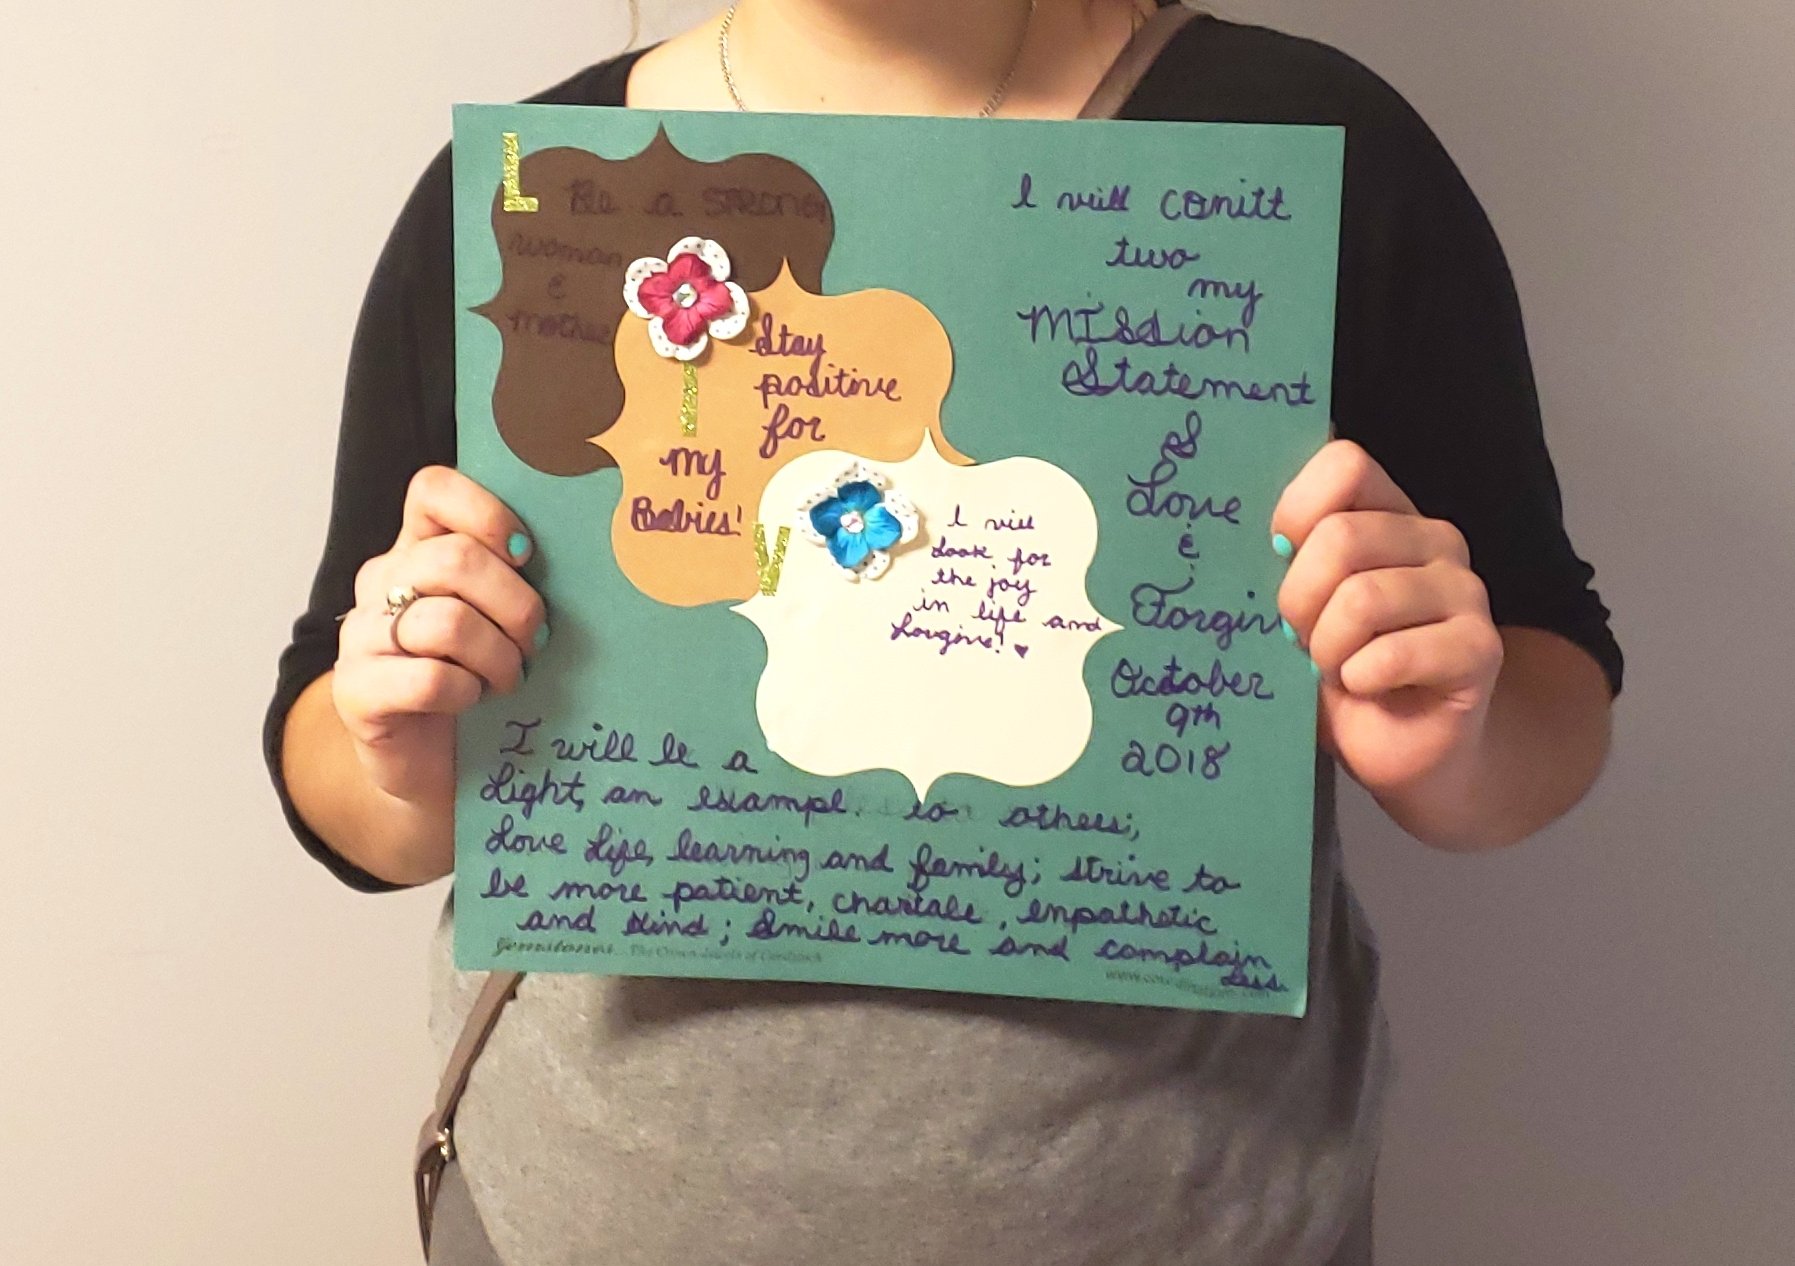 L
Be a STRONG
woman
&
mother
I
Stay
positive
for
my
Babies!
V
I will
Look for
the joy
in life and
Lovgive! ♥
I will comitt
two
my
MISSion
Statement
&
Love
&
Forgiv
October
9th
2018
I will be a
Light, an exampl to others;
Love Life, learning and family; strive to
be more patient, charitable, empathetic
and kind; Smile more and complain
Less.
Gemstones... The Crown Jewels of Cardstock